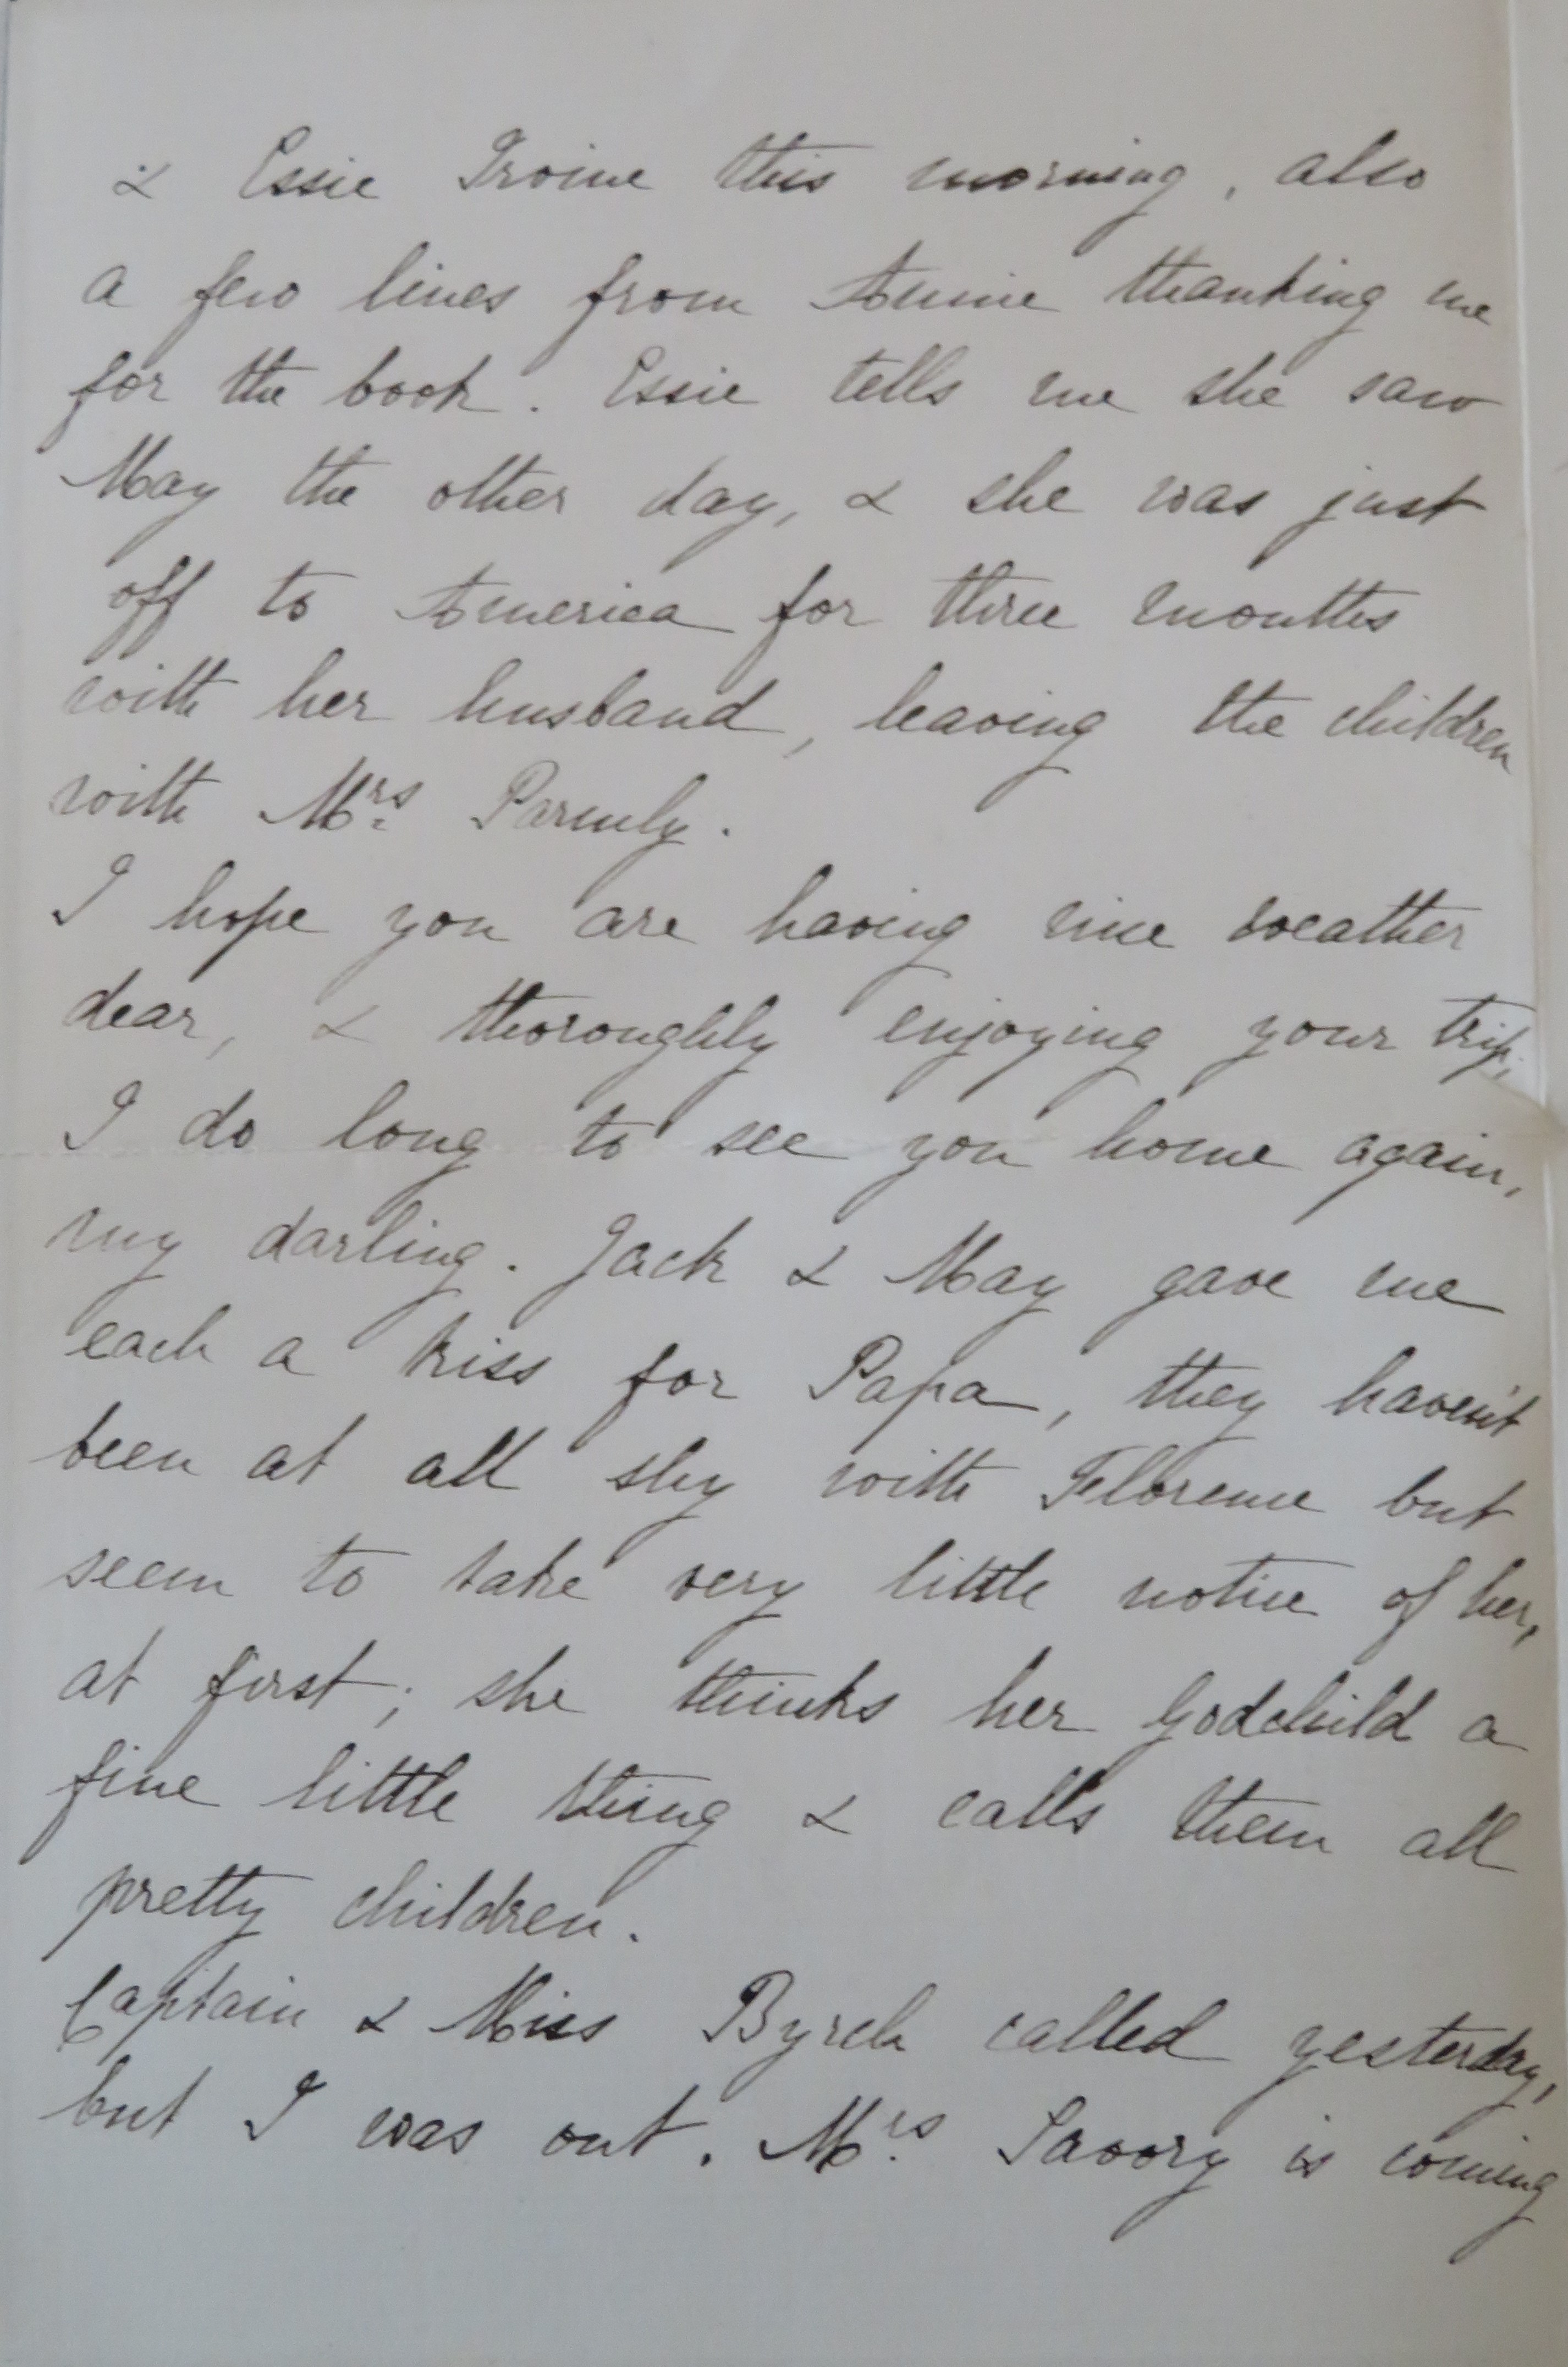 & Essie Irvine this morning, also
a few lines from Annie thanking me
for the book. Essie tells me she saw
May the other day, & she was just
off to America for three months
with her husband, leaving the children
with Mrs. Parmly.
I hope you are having nice weather
dear, & thoroughly enjoying your trip,
I do long to see you home again,
my darling. Jack & May gave me
each a kiss for Papa, they haven't
been at all shy with Florence but
seem to take very little notice of her,
at first; she thinks her Godchild a
fine little thing & calls them all
pretty children.
Captain & Miss Byrch called yesterday,
but I was out. Mrs. Savory is coming